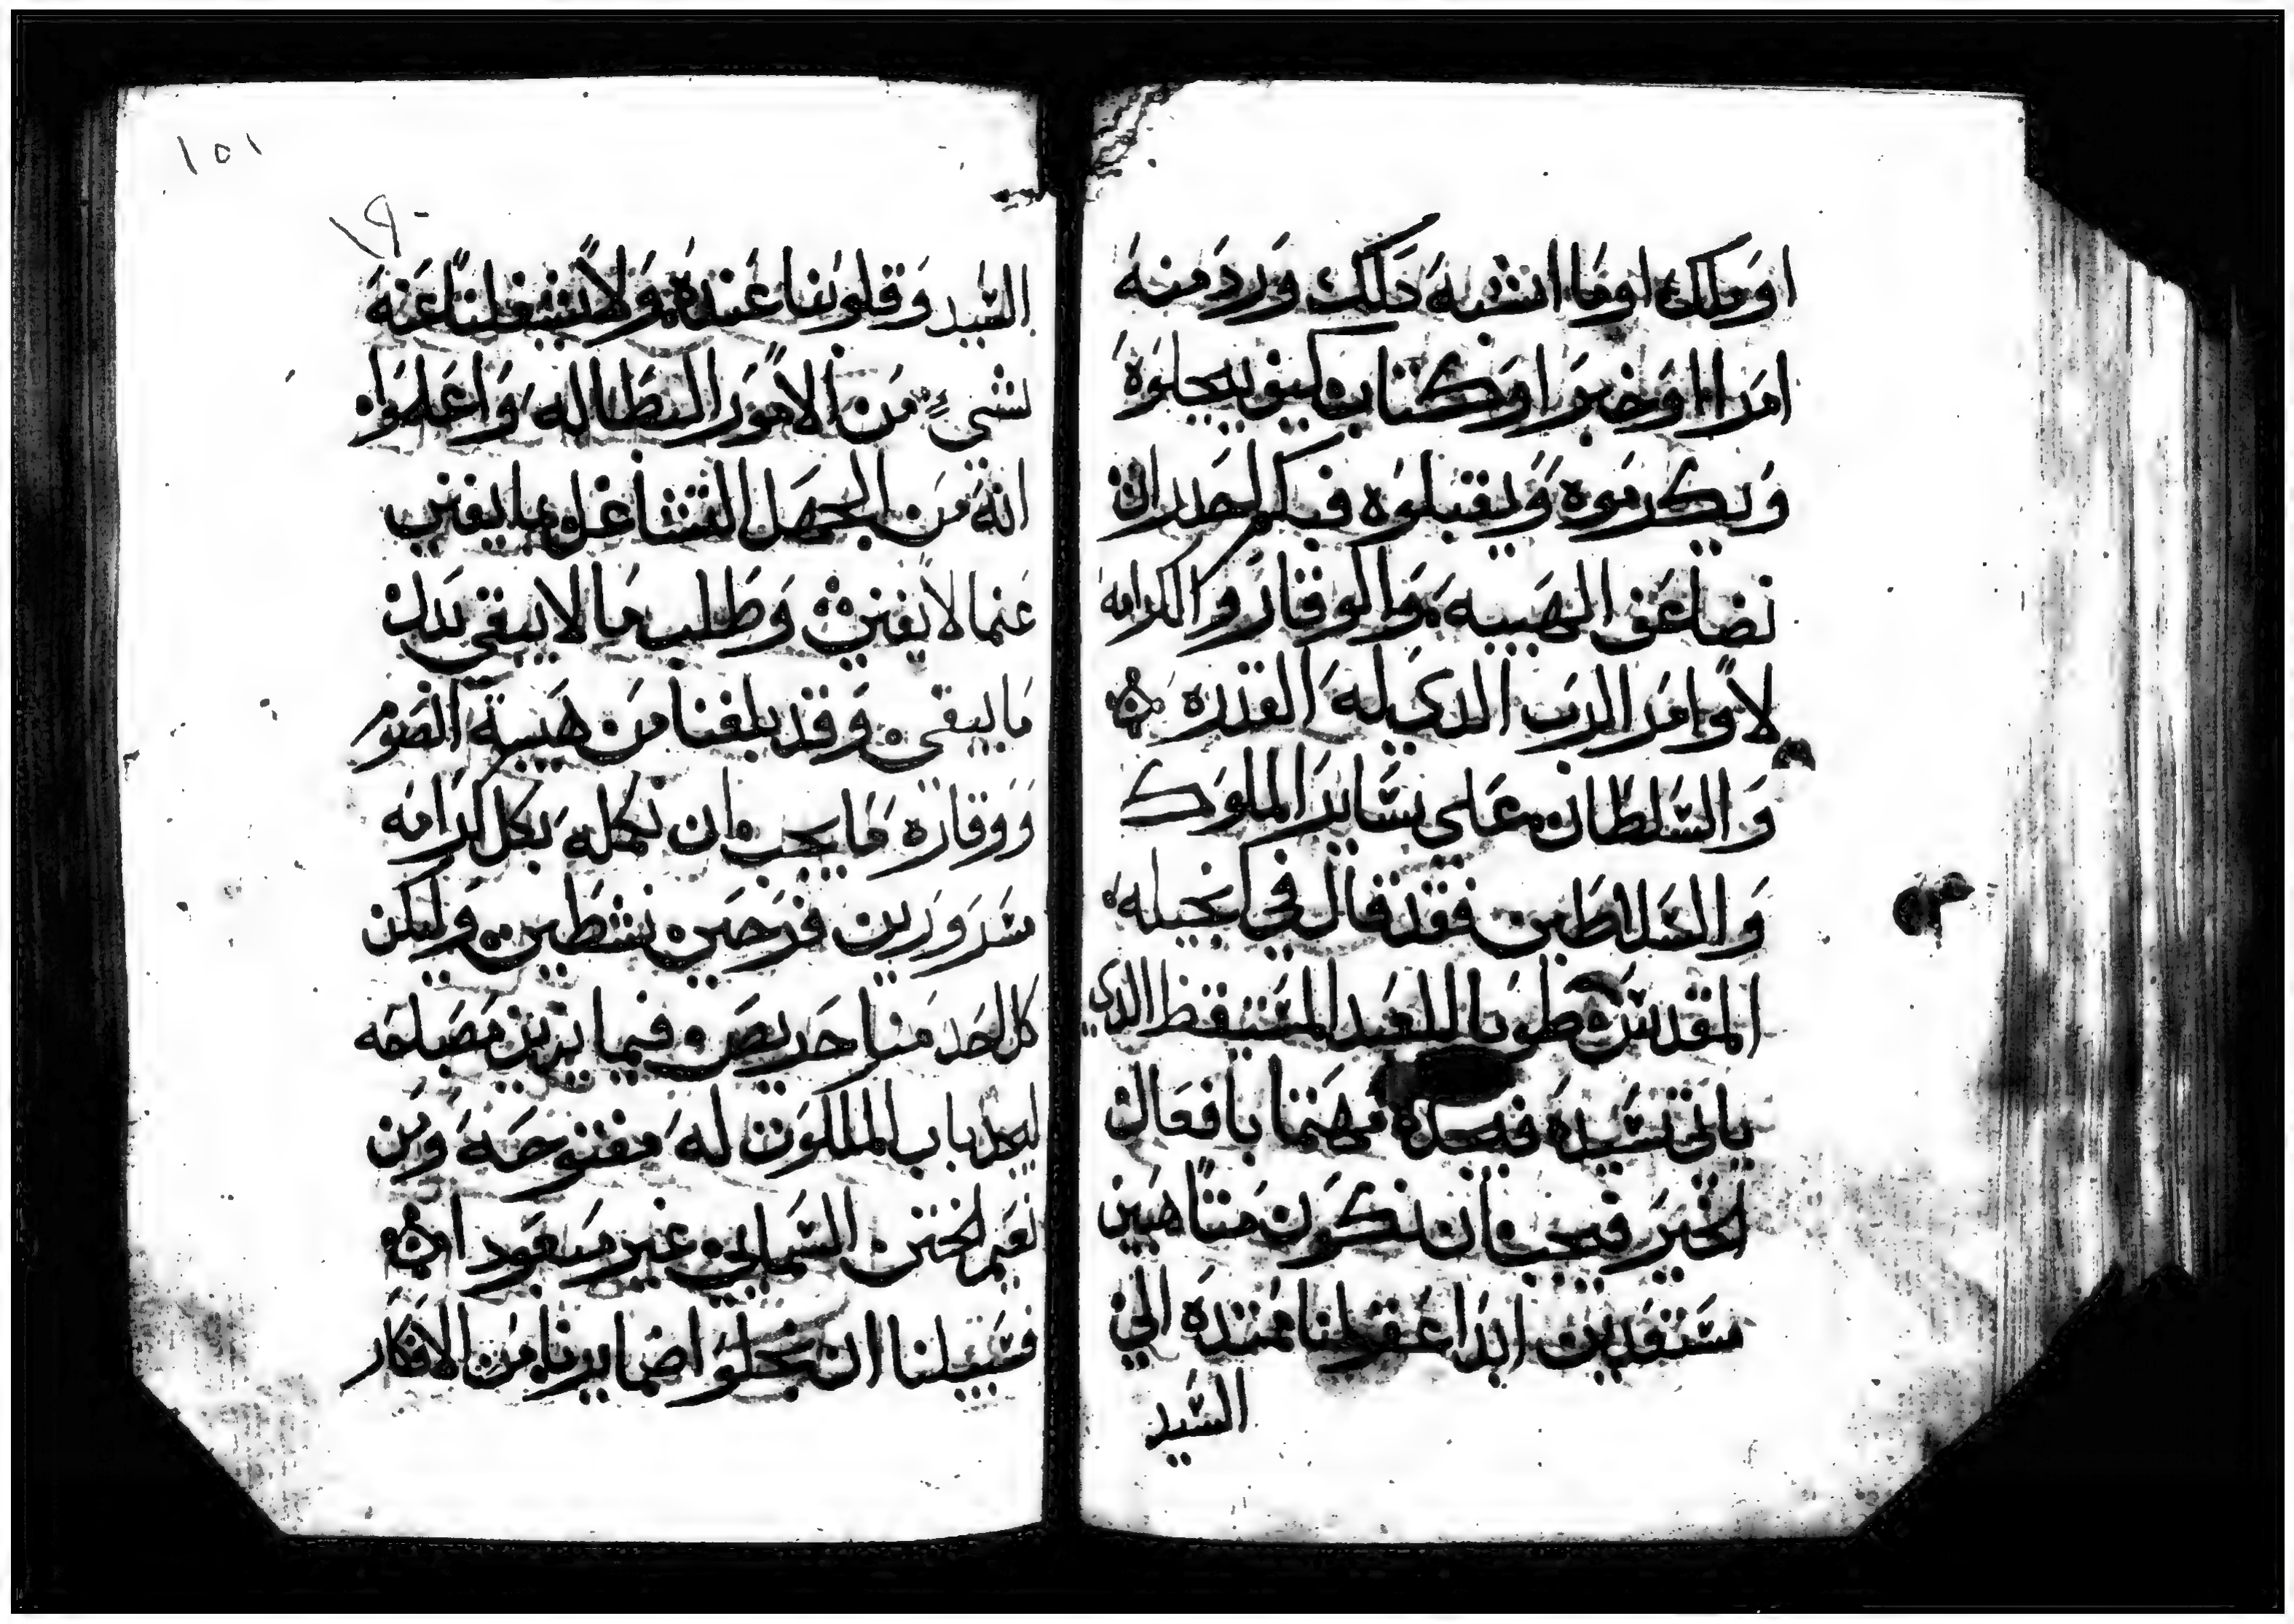 او ملك او ما اشبه دلك ورد منه
امرا او خبر او كتاب كيف يجلوه
ويكرموه ويقبلوه فبكم لحدران
نضاعف الهيبه والوقار والكرامه
لاوامر الرب الدي له القدره
والسلطان على ساير الملوك
والسلاطين فقد قال في انجيله
المقدس طوبا للعبد المستيقظ الدي
ياتي سيده فيجده مهتما بافعال
الخير فيجب ان نكون متاهبين
مستعدين ابدا عقولنا ممتده الي
السيد
١٥١
السيد وقلوبنا عنده ولا يشغلنا عنه
شيء من الامور البطاله واعلموا
انه من الجهل التشاغل بما يفني
عنما لا يفني وطلب ما لا يبقي بدل
ما يبقي وقد بلغنا من هيبة الصوم
ووقاره ما يجب ان نكمله بكل كرامه
مسرورين فرحين نشطين وليكن
كل احد منا حريص فيما يزين مصباحه
ليجد باب الملكوت له مفتوحه ومن
نعيم الختن السمايي غير مبعود
فسبيلنا ان نجلوا ضمايرنا من الافكار